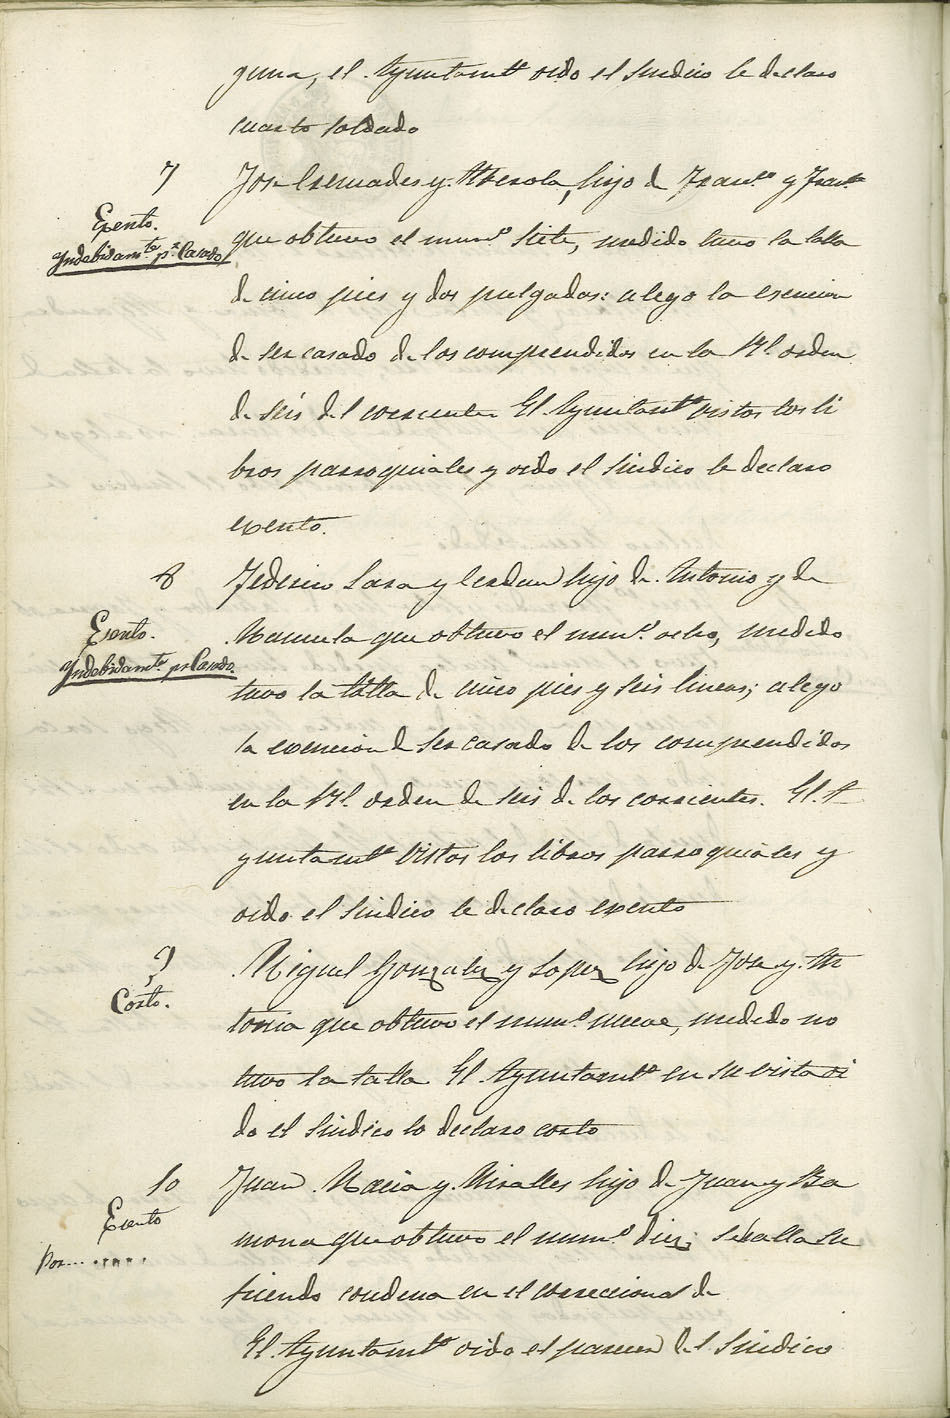 guna, el Ayuntamto oido el Sindico le declaro
cuarto soldado
7
Jose Cremades y Alberola, hijo de Franco y Franca
Exento.
Yndebidamte pr Casado
que obtuvo el numo siete, medido tuvo la talla
de cinco pies y dos pulgadas: alego la esencion
de ser casado de los comprendidos en la Rl. orden
de seis del corriente El Ayuntamto vistos los li
bros parroquiales y oido el Sindico le declaro
exento.
8
Federico Lara y Cerdan hijo de Antonio y de
Esento.
Manuela que obtuvo el numo ocho, medido
Yndebidamte pr Casado.
tuvo la talla de cinco pies y seis lineas; alego
la exencion de ser casado de los comprendidos
en la Rl. orden de seis de los corrientes. El A
yuntamto vistos los libros parroquiales y
oido el Sindico le declaro exento
9
Miguel Gonzalez y Lopez hijo de Jose y An
Corto.
tonia que obtuvo el numo nueve, medido no
tuvo la talla El Ayuntamto en su vista oi
do el Sindico lo declaro corto
10
Juan Macia y Miralles hijo de Juan y Ra
Esento
mona que obtuvo el numo diez; se halla su
Por........
friendo condena en el correccional de
El Ayuntamto oido el parecer del Sindico